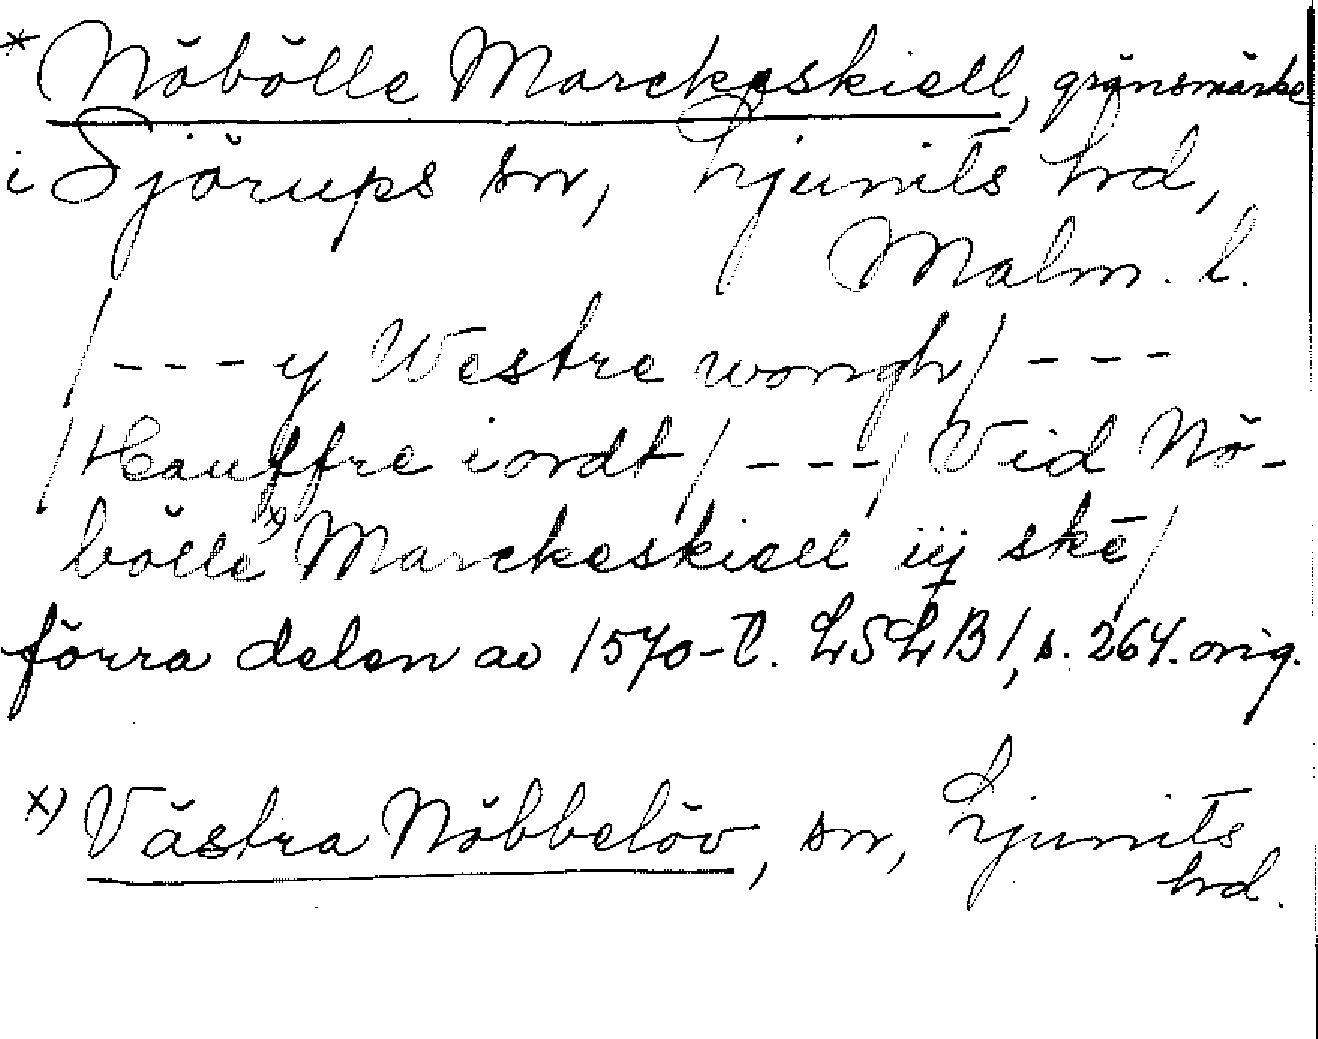 * Nöbölle Marckeskiell, gränsmärke
i Sjörups sn, Ljunits hrd,
Malm. l.
/ - - - y Westre wongh / - - -
/ Hauffre iordt / - - - / Vid Nö-
bölle x) Marckeskiell iij skē /
förra delen av 1570-t. LSLB 1, s. 264. orig.
x) Västra Nöbbelöv, sn, Ljunits
hrd.